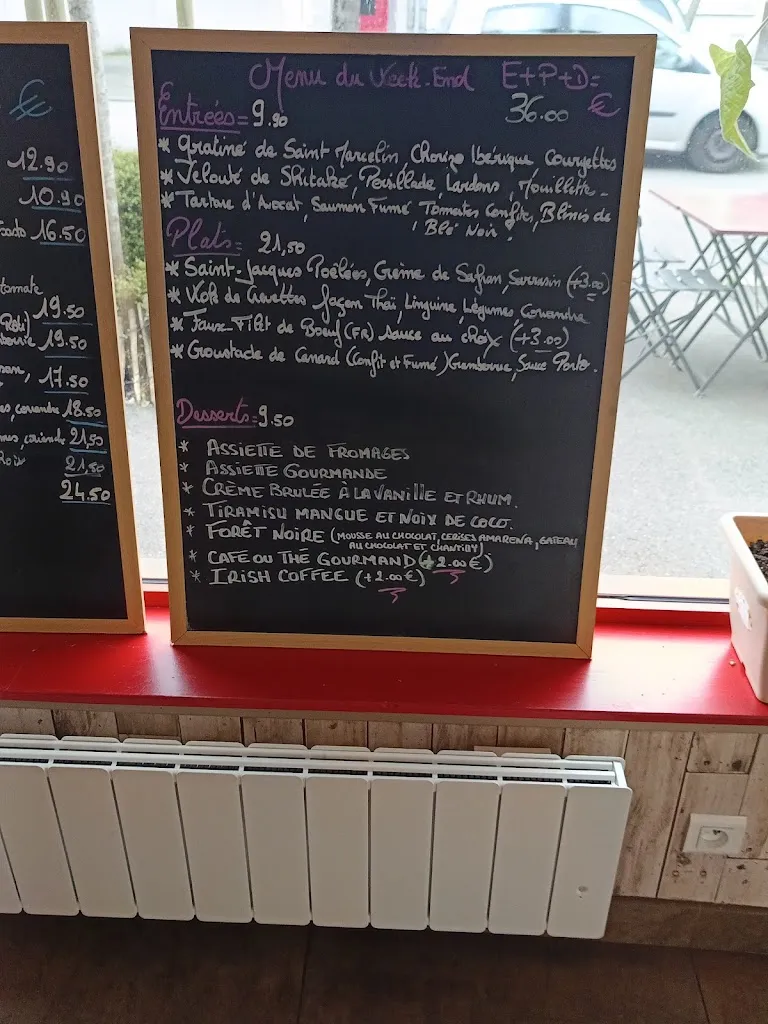 €
12.90
10.90
16.50
tomate
19.50
19.50
17.50
18.50
21,50
21,50
24.50
Menu du Week-End E+P+D=
36.00 €
Entrées= 9.90
* Gratiné de Saint Marcelin, Chorizo Ibérique Courgettes
* Velouté de Shitaké, Persillade, Lardons, Mouillette.
* Tartare d'Avocat, Saumon Fumé Tomates Confite, Blinis de
Blé Noir !
Plats= 21,50
* Saint-Jacques Poêlées, Crème de Safran, Sarrasin (+3.00)
* Wok de Crevettes façon Thaï, Linguine, Légumes, Coriandre
* Faux-Filet de Boeuf (FR) Sauce au choix (+3.00)
* Croustade de Canard (Confit et Fumé) Sauce Porto.
Desserts= 9.50
* ASSIETTE DE FROMAGES
* ASSIETTE GOURMANDE
* CRÈME BRULÉE À LA VANILLE ET RHUM.
* TIRAMISU MANGUE ET NOIX DE COCO.
* FORÊT NOIRE (MOUSSE AU CHOCOLAT, CERISES AMARENA, GATEAU
AU CHOCOLAT ET CHANTILLY)
* CAFÉ OU THÉ GOURMAND (+2.00€)
* IRISH COFFEE (+2.00€)